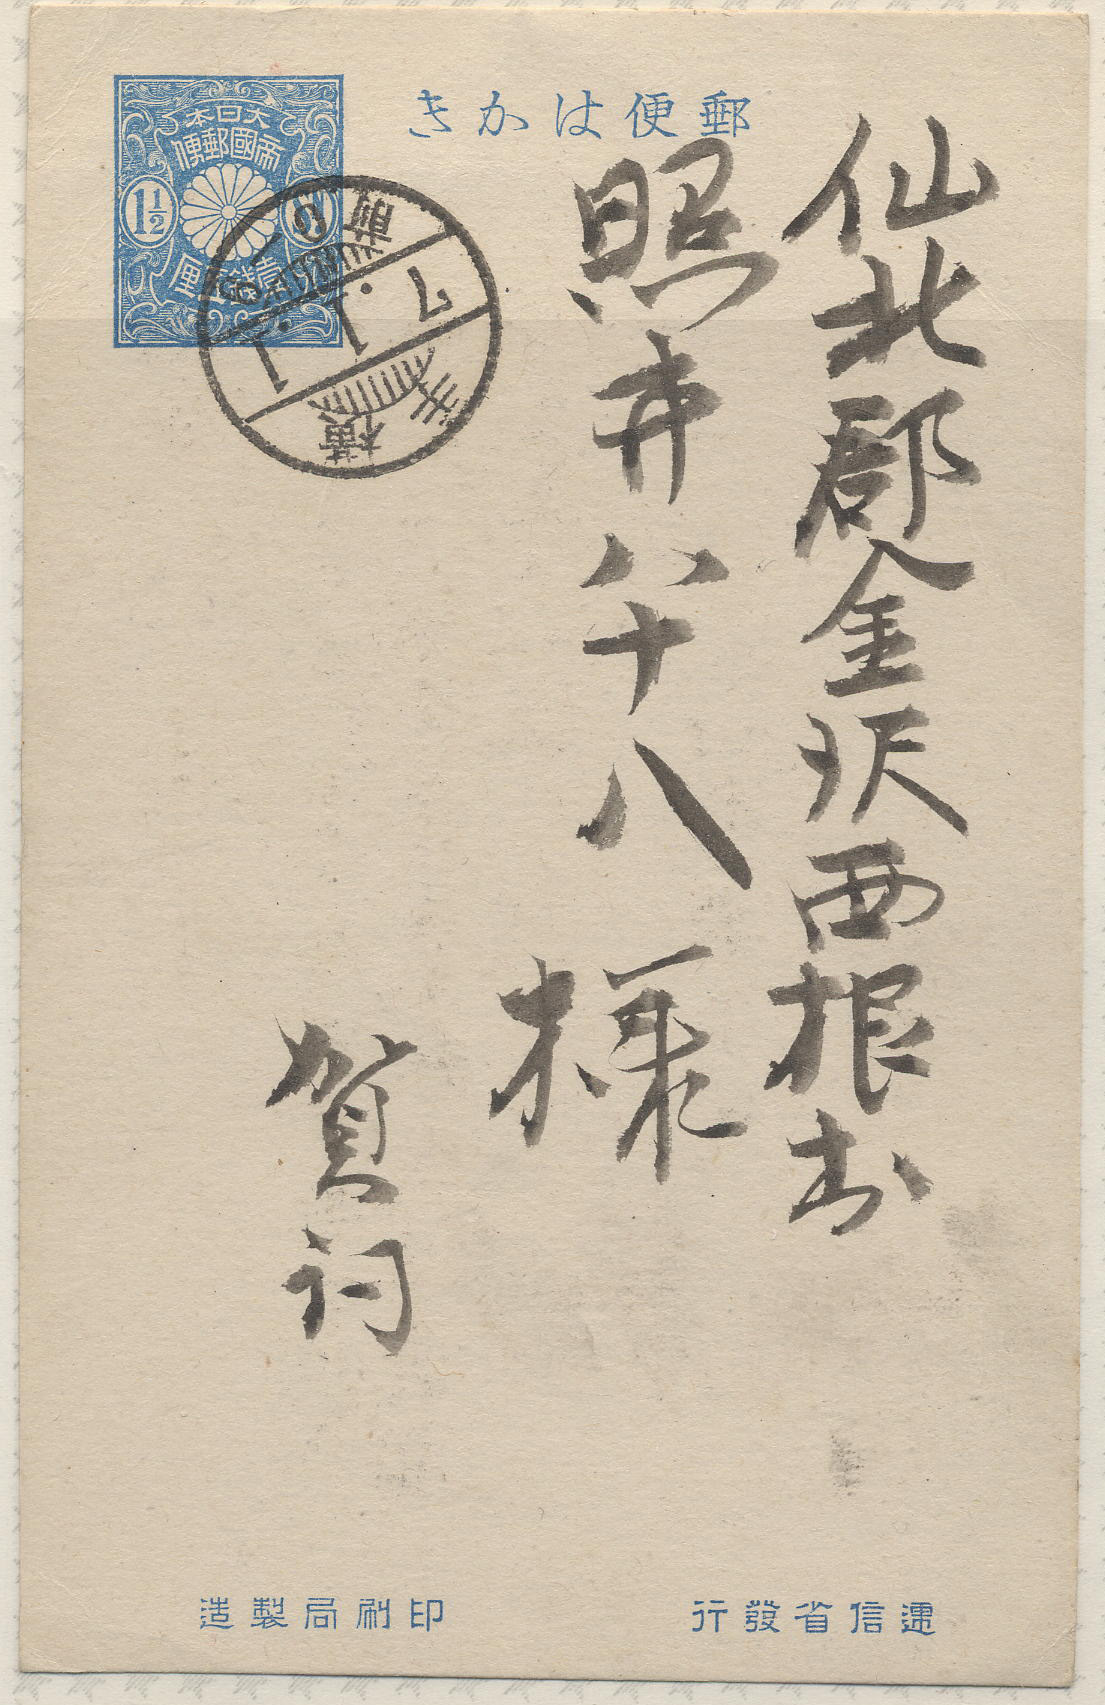 郵便はかき
大日本
帝國郵便
1½
壹錢五厘
横手
7.1.1
前
仙北郡金沢西根村
照井八十八様
賀詞
逓信省發行
印刷局製造